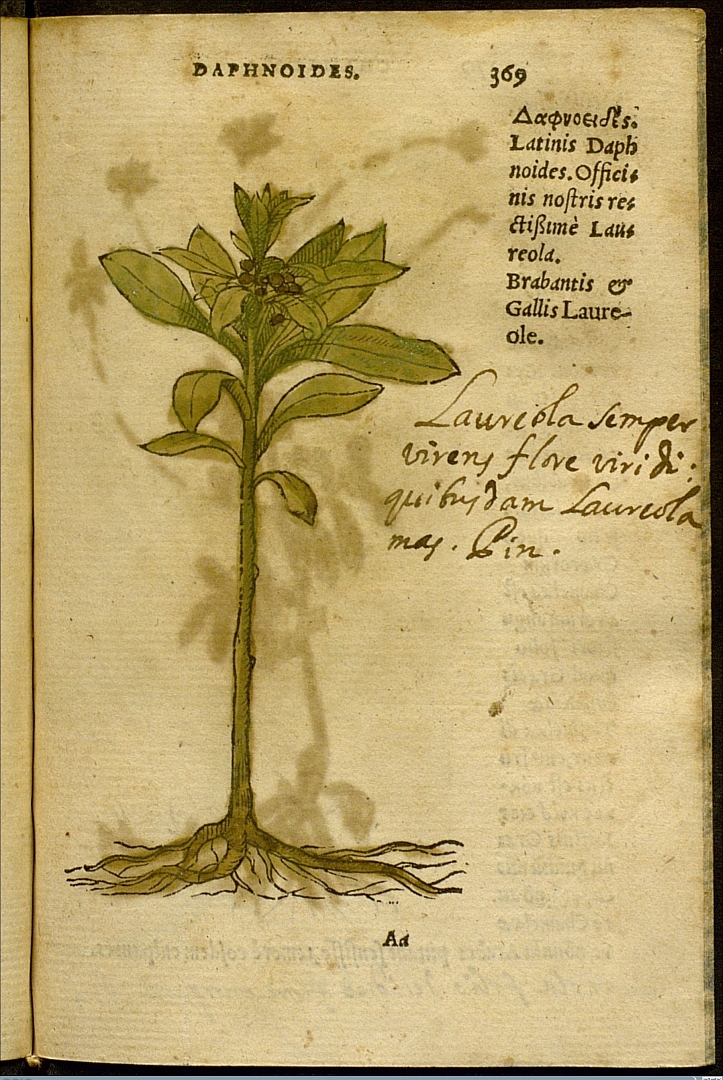 DAPHNOIDES.
369
Δαφνοειδὲς.
Latinis Daph
noides. Offici⸗
nis noſtris re⸗
ctißimè Lau⸗
reola.
Brabantis &
Gallis Laure-
ole.
Laureola semper
virens flore viridi:
quibusdam Laureola
mas. Pin.
Aa